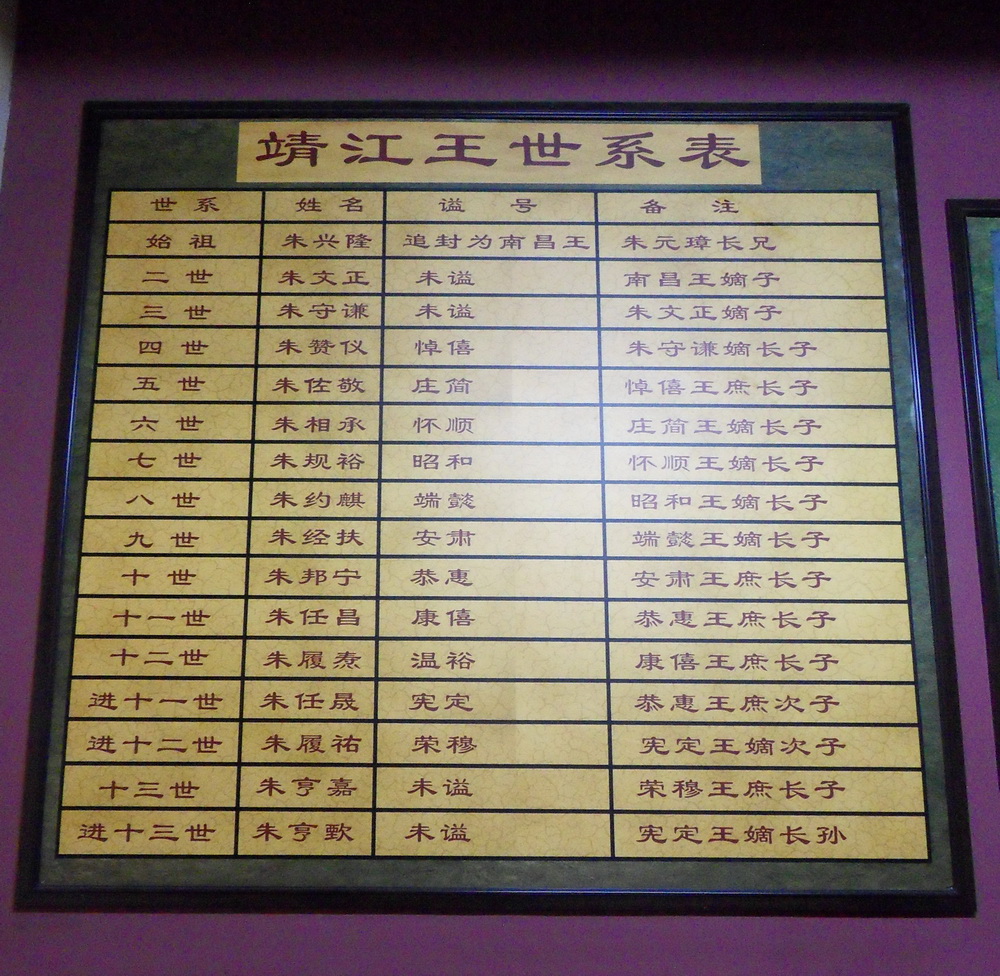 靖江王世系表
世系 姓名 谥号 备注
始祖 朱兴隆 追封为南昌王 朱元璋长兄
二世 朱文正 未谥 南昌王嫡子
三世 朱守谦 未谥 朱文正嫡子
四世 朱赞仪 悼僖 朱守谦嫡长子
五世 朱佐敬 庄简 悼僖王庶长子
六世 朱相承 怀顺 庄简王嫡长子
七世 朱规裕 昭和 怀顺王嫡长子
八世 朱约麒 端懿 昭和王嫡长子
九世 朱经扶 安肃 端懿王嫡长子
十世 朱邦宁 恭惠 安肃王庶长子
十一世 朱任昌 康僖 恭惠王庶长子
十二世 朱履焘 温裕 康僖王庶长子
进十一世 朱任晟 宪定 恭惠王庶次子
进十二世 朱履祐 荣穆 宪定王嫡次子
十三世 朱亨嘉 未谥 荣穆王庶长子
进十三世 朱亨歅 未谥 宪定王嫡长孙